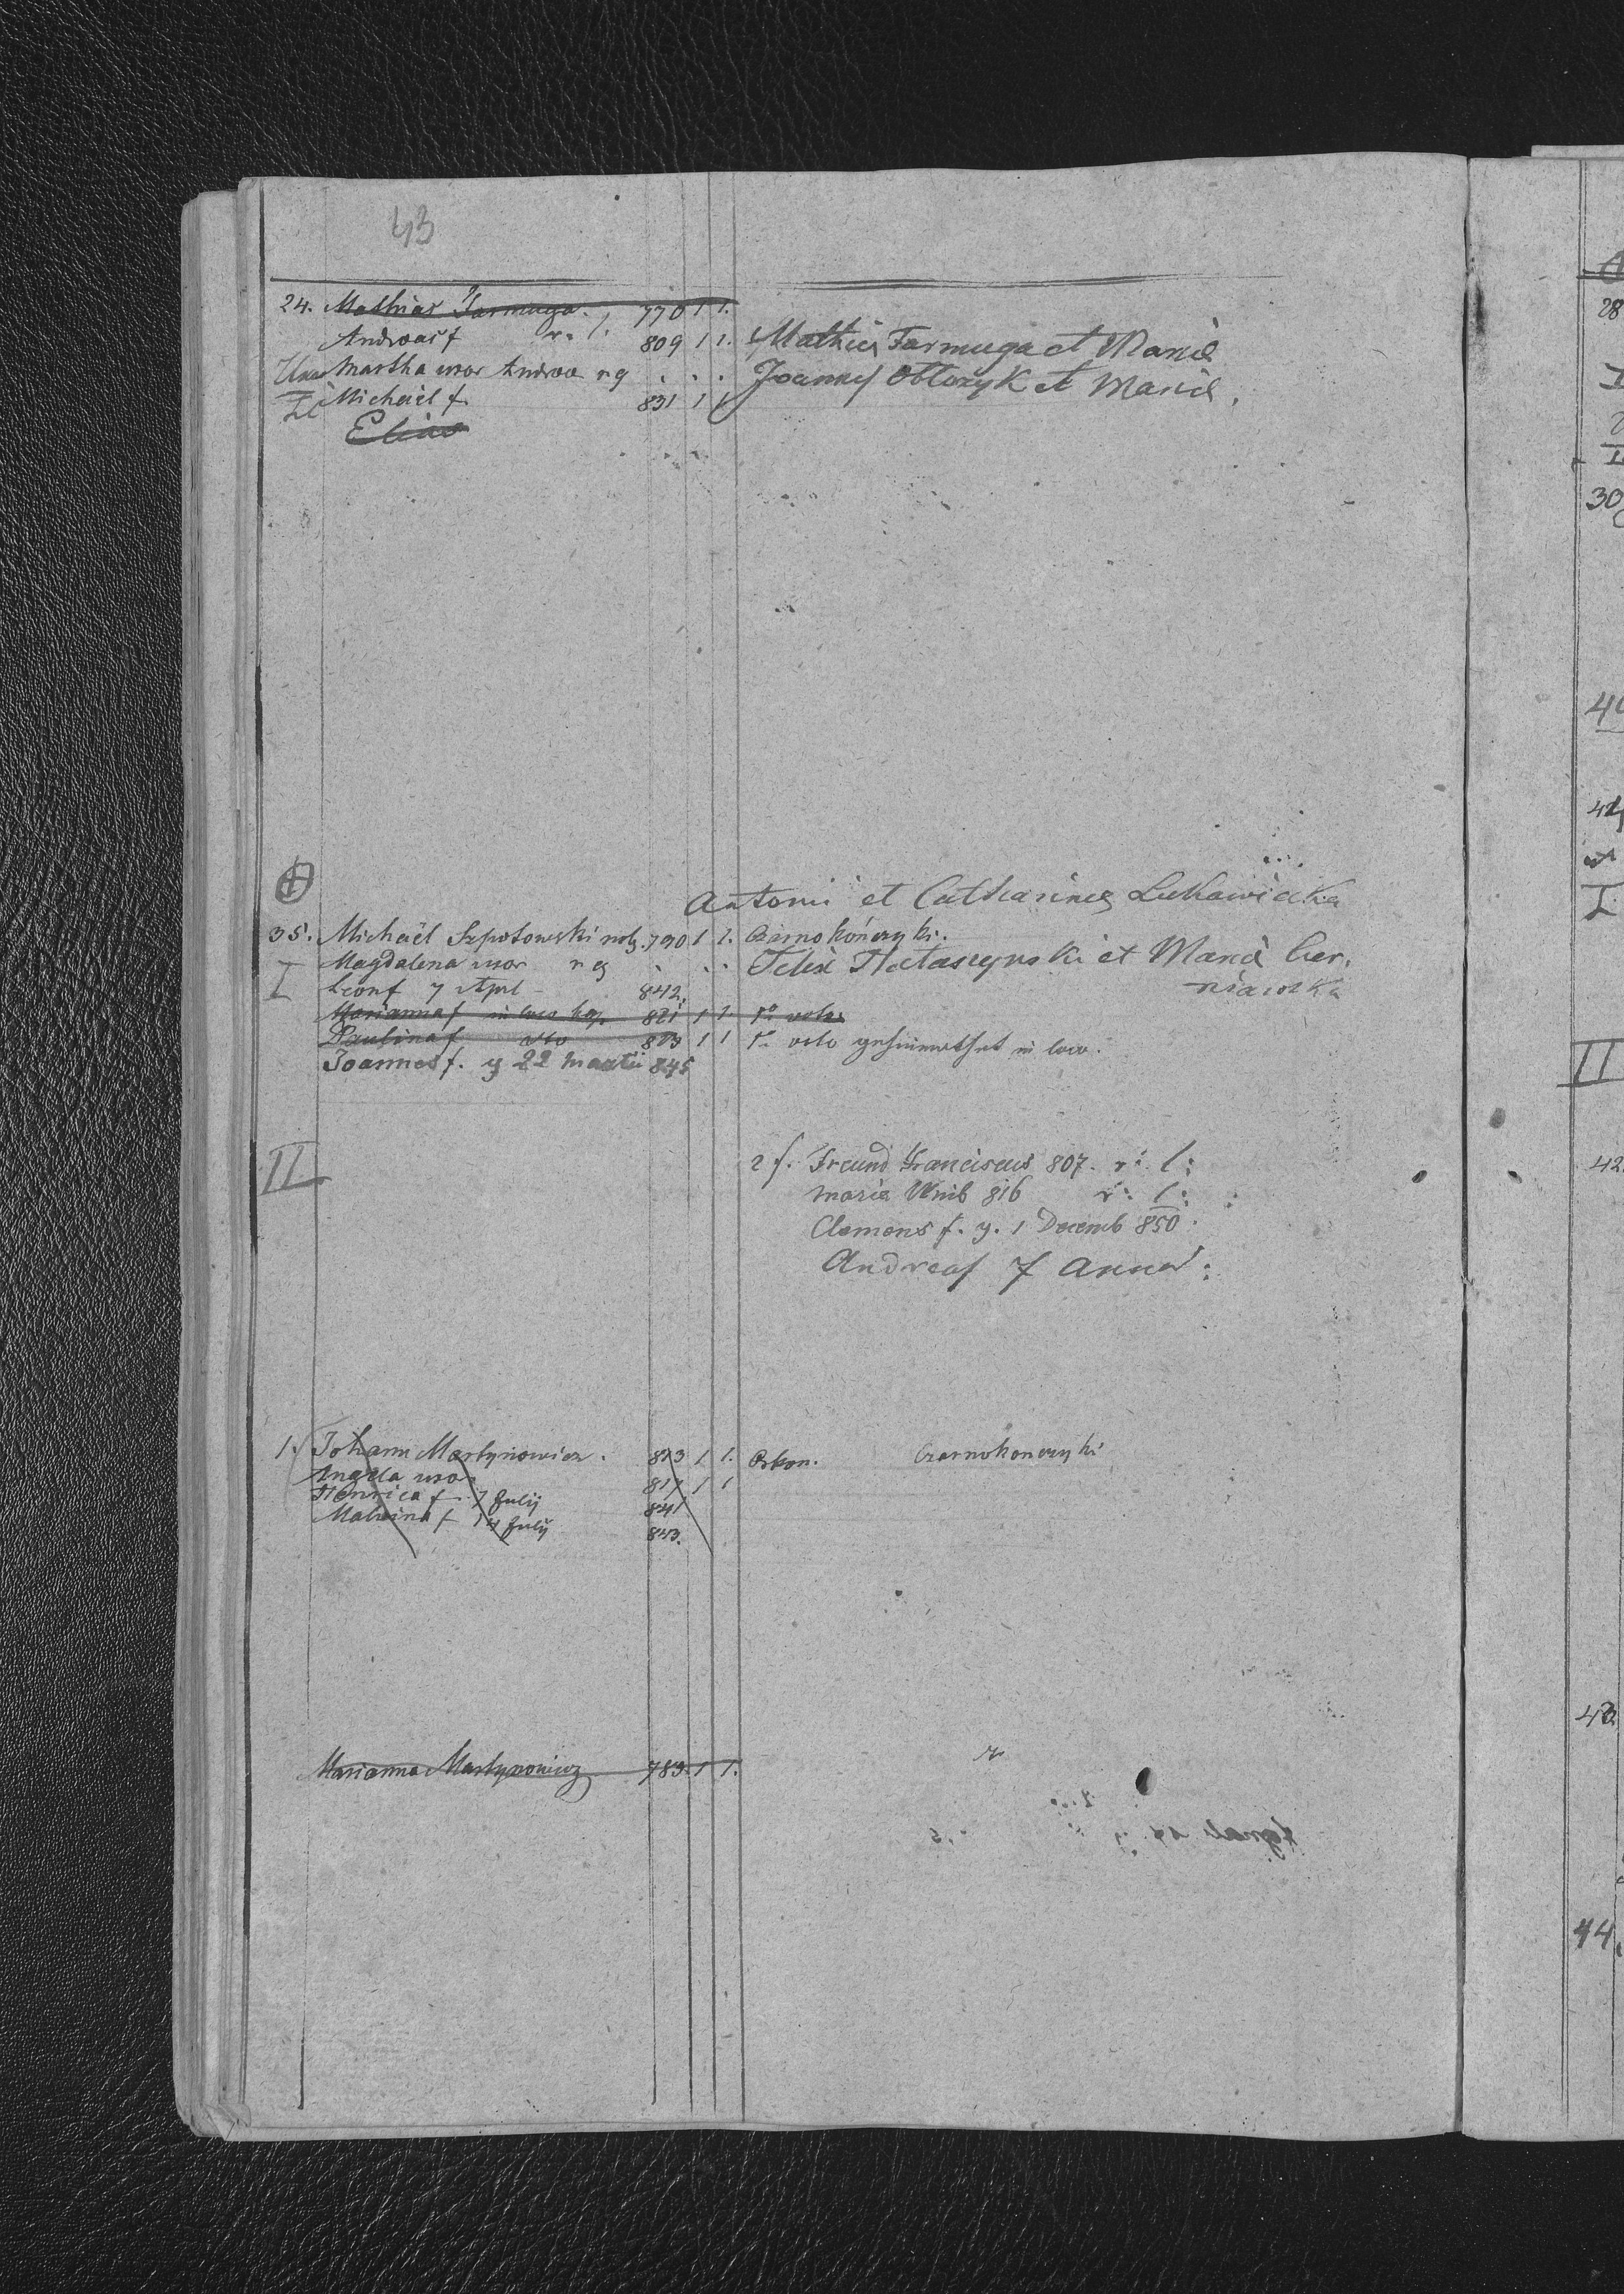 43
24. Mathias Farmuga. 770 1 1.
Andreas f r. l. 809 1 1. Mathias Farmuga et Maria
Martha uxor Andreae r g . . . Joannes Oblozyk et Maria.
Michaël f. 831 1 1
Antonii et Catharina Lukawiecka
35. Michaël Szpotowski nob. 790 1 1. Czarnokończyki.
I Magdalena uxor r g . . . Felix Hataszynski et Maria Cer,
niawska
Leon f 7 Aprl - 842.
Marianna f in loco hap. 821 1 1. 1o voto
Paulina f dto 823 1 1 1o voto in loco.
Joannes f. g 22 martii 845
II
2 f. Freund Franciscus 807. r: l:
Maria Unib 816 r: l:
Clemens f. g. 1 Decemb 850.
Andreas f Anna:
1. Johann Martynowicz. 813 1 1. Oekon. Czarnokonczyki
Angela uxor 817 1 1
Henrica f. 7 Julij 841
Malwina f 14 Julij 843.
Marianna Martynowicz 783. 1 1.
28
30
40
II
42
43
44